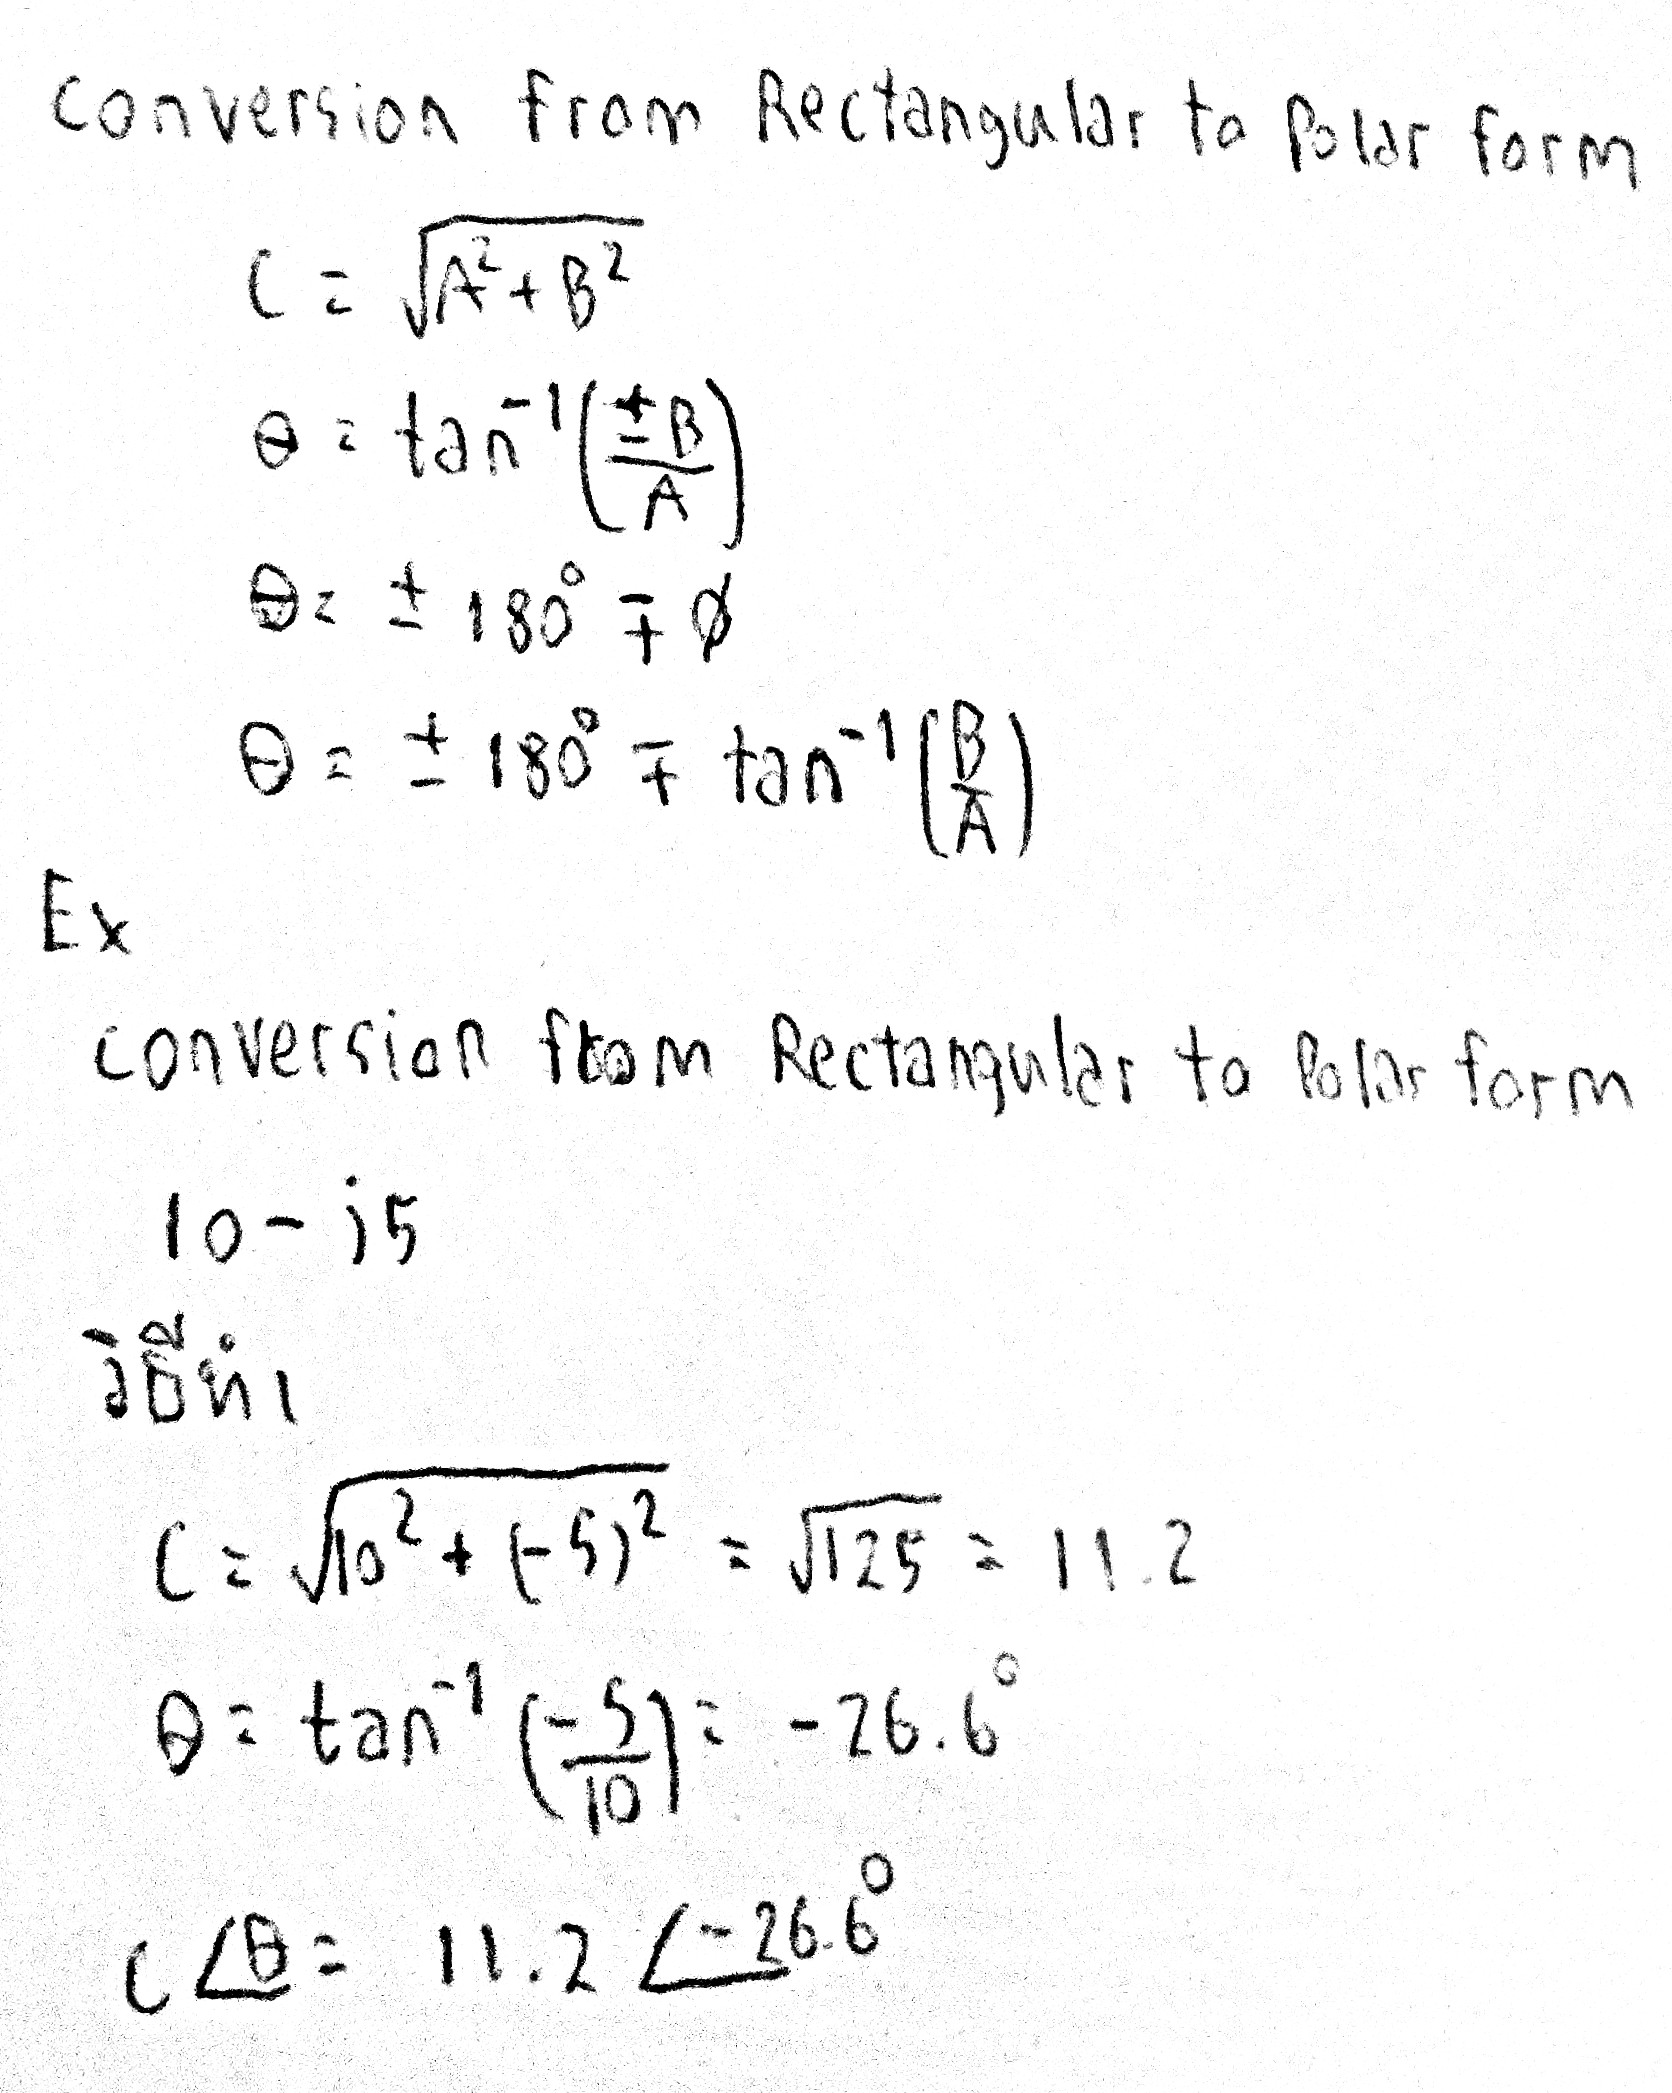 conversion from Rectangular to Polar form
C = √A² + B²
θ = tan⁻¹(±B/A)
θ = ± 180° ∓ ϕ
θ = ± 180° ∓ tan⁻¹(B/A)
Ex
conversion from Rectangular to Polar form
10 - j5
วิธีทำ
C = √10² + (-5)² = √125 = 11.2
θ = tan⁻¹(-5/10) = -26.6°
C∠θ = 11.2 ∠-26.6°